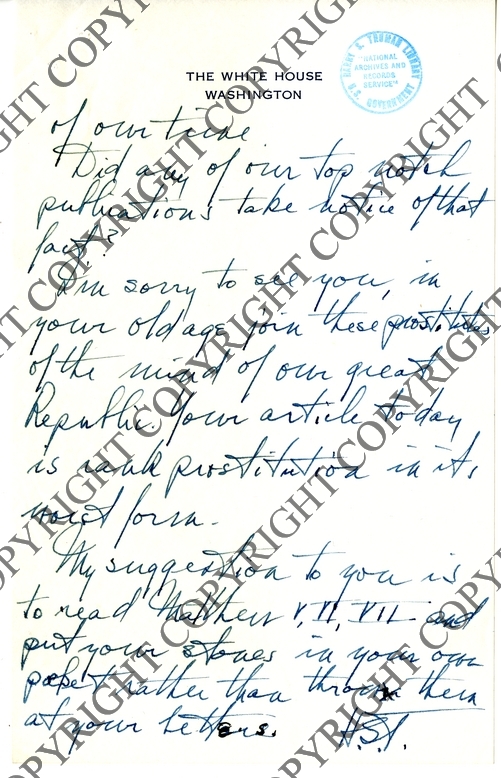 THE WHITE HOUSE
WASHINGTON
HARRY S. TRUMAN LIBRARY
"NATIONAL
ARCHIVES AND
RECORDS
SERVICE"
U.S. GOVERNMENT
of our time
Did any of our top notch
publications take notice of that
fact?
I'm sorry to see you, in
your old age, join these prostitutes
of the mind of our great
Republic. Your article today
is rank prostitution in its
worst form.
My suggestion to you is
to read Matthew V, VI, VII and
put your stones in your own
pocket rather than throw them
at your betters.
H.S.T.
COPYRIGHT COPYRIGHT COPYRIGHT